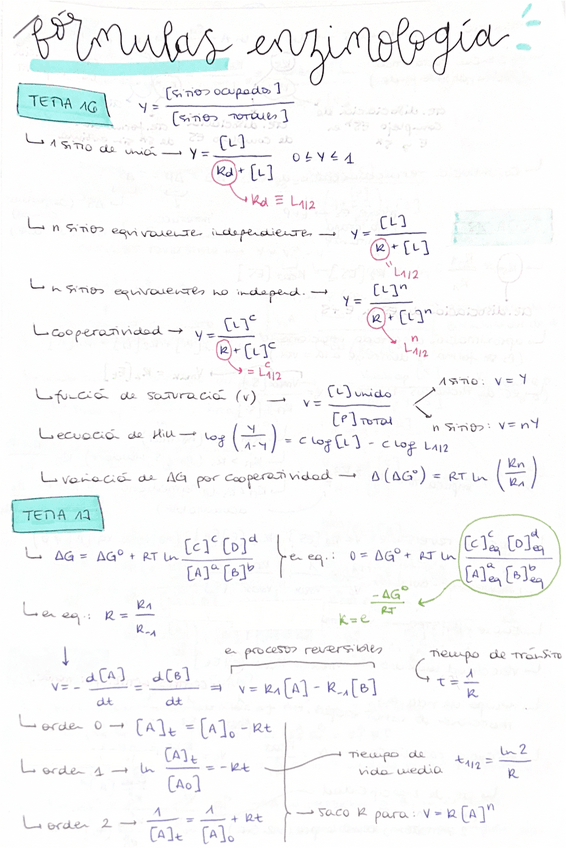 fórmulas enzimología
TEMA 16
Y = [sitios ocupados] / [sitios totales]
↳ 1 sitio de unió → Y = [L] / (Kd + [L])   0 ≤ Y ≤ 1
→ Kd ≡ L1/2
↳ n sitios equivalentes independientes → Y = [L] / (K + [L])
" L1/2
↳ n sitios equivalentes no independ. → Y = [L]ⁿ / (K + [L]ⁿ)
→ Lⁿ1/2
↳ cooperatividad → Y = [L]ᶜ / (K + [L]ᶜ)
→ = Lᶜ1/2
↳ función de saturación (v) → v = [L]unido / [P]TOTAL
1 sitio: v = Y
n sitios: v = nY
↳ ecuación de Hill → log (Y / 1-Y) = c log [L] - c log L1/2
↳ variación de ΔG por cooperatividad → Δ(ΔG⁰) = RT ln (Kn / K1)
TEMA 17
↳ ΔG = ΔG⁰ + RT ln [C]ᶜ[D]ᵈ / [A]ᵃ[B]ᵇ   en eq.: 0 = ΔG⁰ + RT ln [C]ᶜeq [D]ᵈeq / [A]ᵃeq [B]ᵇeq
K = e^(-ΔG⁰ / RT)
↳ en eq.: K = K1 / K-1
↓
en procesos reversibles
v = - d[A]/dt = d[B]/dt ⇒ v = K1[A] - K-1[B]
tiempo de tránsito
↳ τ = 1/K
↳ orden 0 → [A]t = [A]0 - Kt
↳ orden 1 → ln [A]t / [A0] = -Kt
→ tiempo de vida media t1/2 = ln 2 / K
→ saco K para: V = K[A]ⁿ
↳ orden 2 → 1/[A]t = 1/[A]0 + Kt